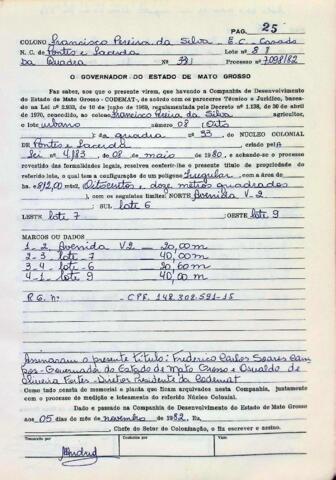 PAG. 25
COLONO Francisco Pereira da Silva - E.C - Casado
N. C. de Pontes e Lacerda Lote 8
da Quadra Nº 33 Processo nº 7098/82
O GOVERNADOR DO ESTADO DE MATO GROSSO
Faz saber, aos que o presente virem, que havendo a Companhia de Desenvolvimento
do Estado de Mato Grosso - CODEMAT-, de acordo com os pareceres Técnico e Jurídico, basea-
da na Lei nº 2.925, de 10 de junho de 1969, regulamentada pelo Decreto nº 1.138, de 20 de abril
de 1970, concedido, ao colono Francisco Pereira da Silva agricultor,
o lote urbano número 08 Oito
da quadra nº 33, NÚCLEO COLONIAL
de Pontes e Lacerda criado pela
Lei nº 4.183, de 08 de maio de 1980, e achando-se o processo
revestido das formalidades legais, resolveu conferir-lhe o presente título de propriedade do
referido lote, o qual tem a configuração de um polígono Irregular com a área de
812,00 mts2, Oitocentos e doze metros quadrados
, com os seguintes limites: NORTE Avenida V-2
; SUL lote 6
LESTE lote 7 ; OESTE lote 9
MARCOS OU DADOS
1-2 Avenida V2 - 20,00 m
2-3 lote - 7 - 40,00 m
3-4 - lote - 6 - 20,60 m
4-1 - lote 9 - 40,00 m
R.G. nº - CPF. 142.302.591-15
Assinaram o presente título: Frederico Carlos Soares Cam
pos - Governador do Estado de Mato Grosso e Osvaldo de
Oliveira Fortes - Diretor Presidente da Codemat
Como tudo consta do memorial e planta que ficam arquivados nesta Companhia, juntamente
com o processo de medição e loteamento do referido Núcleo Colonial.
Dado e passado na Companhia de Desenvolvimento do Estado de Mato Grosso
aos 05 dias do mês de novembro de 1982. Eu,
Chefe do Setor de Colonização, o fiz escrever e assino.
Transcrito por Conferido por Visto